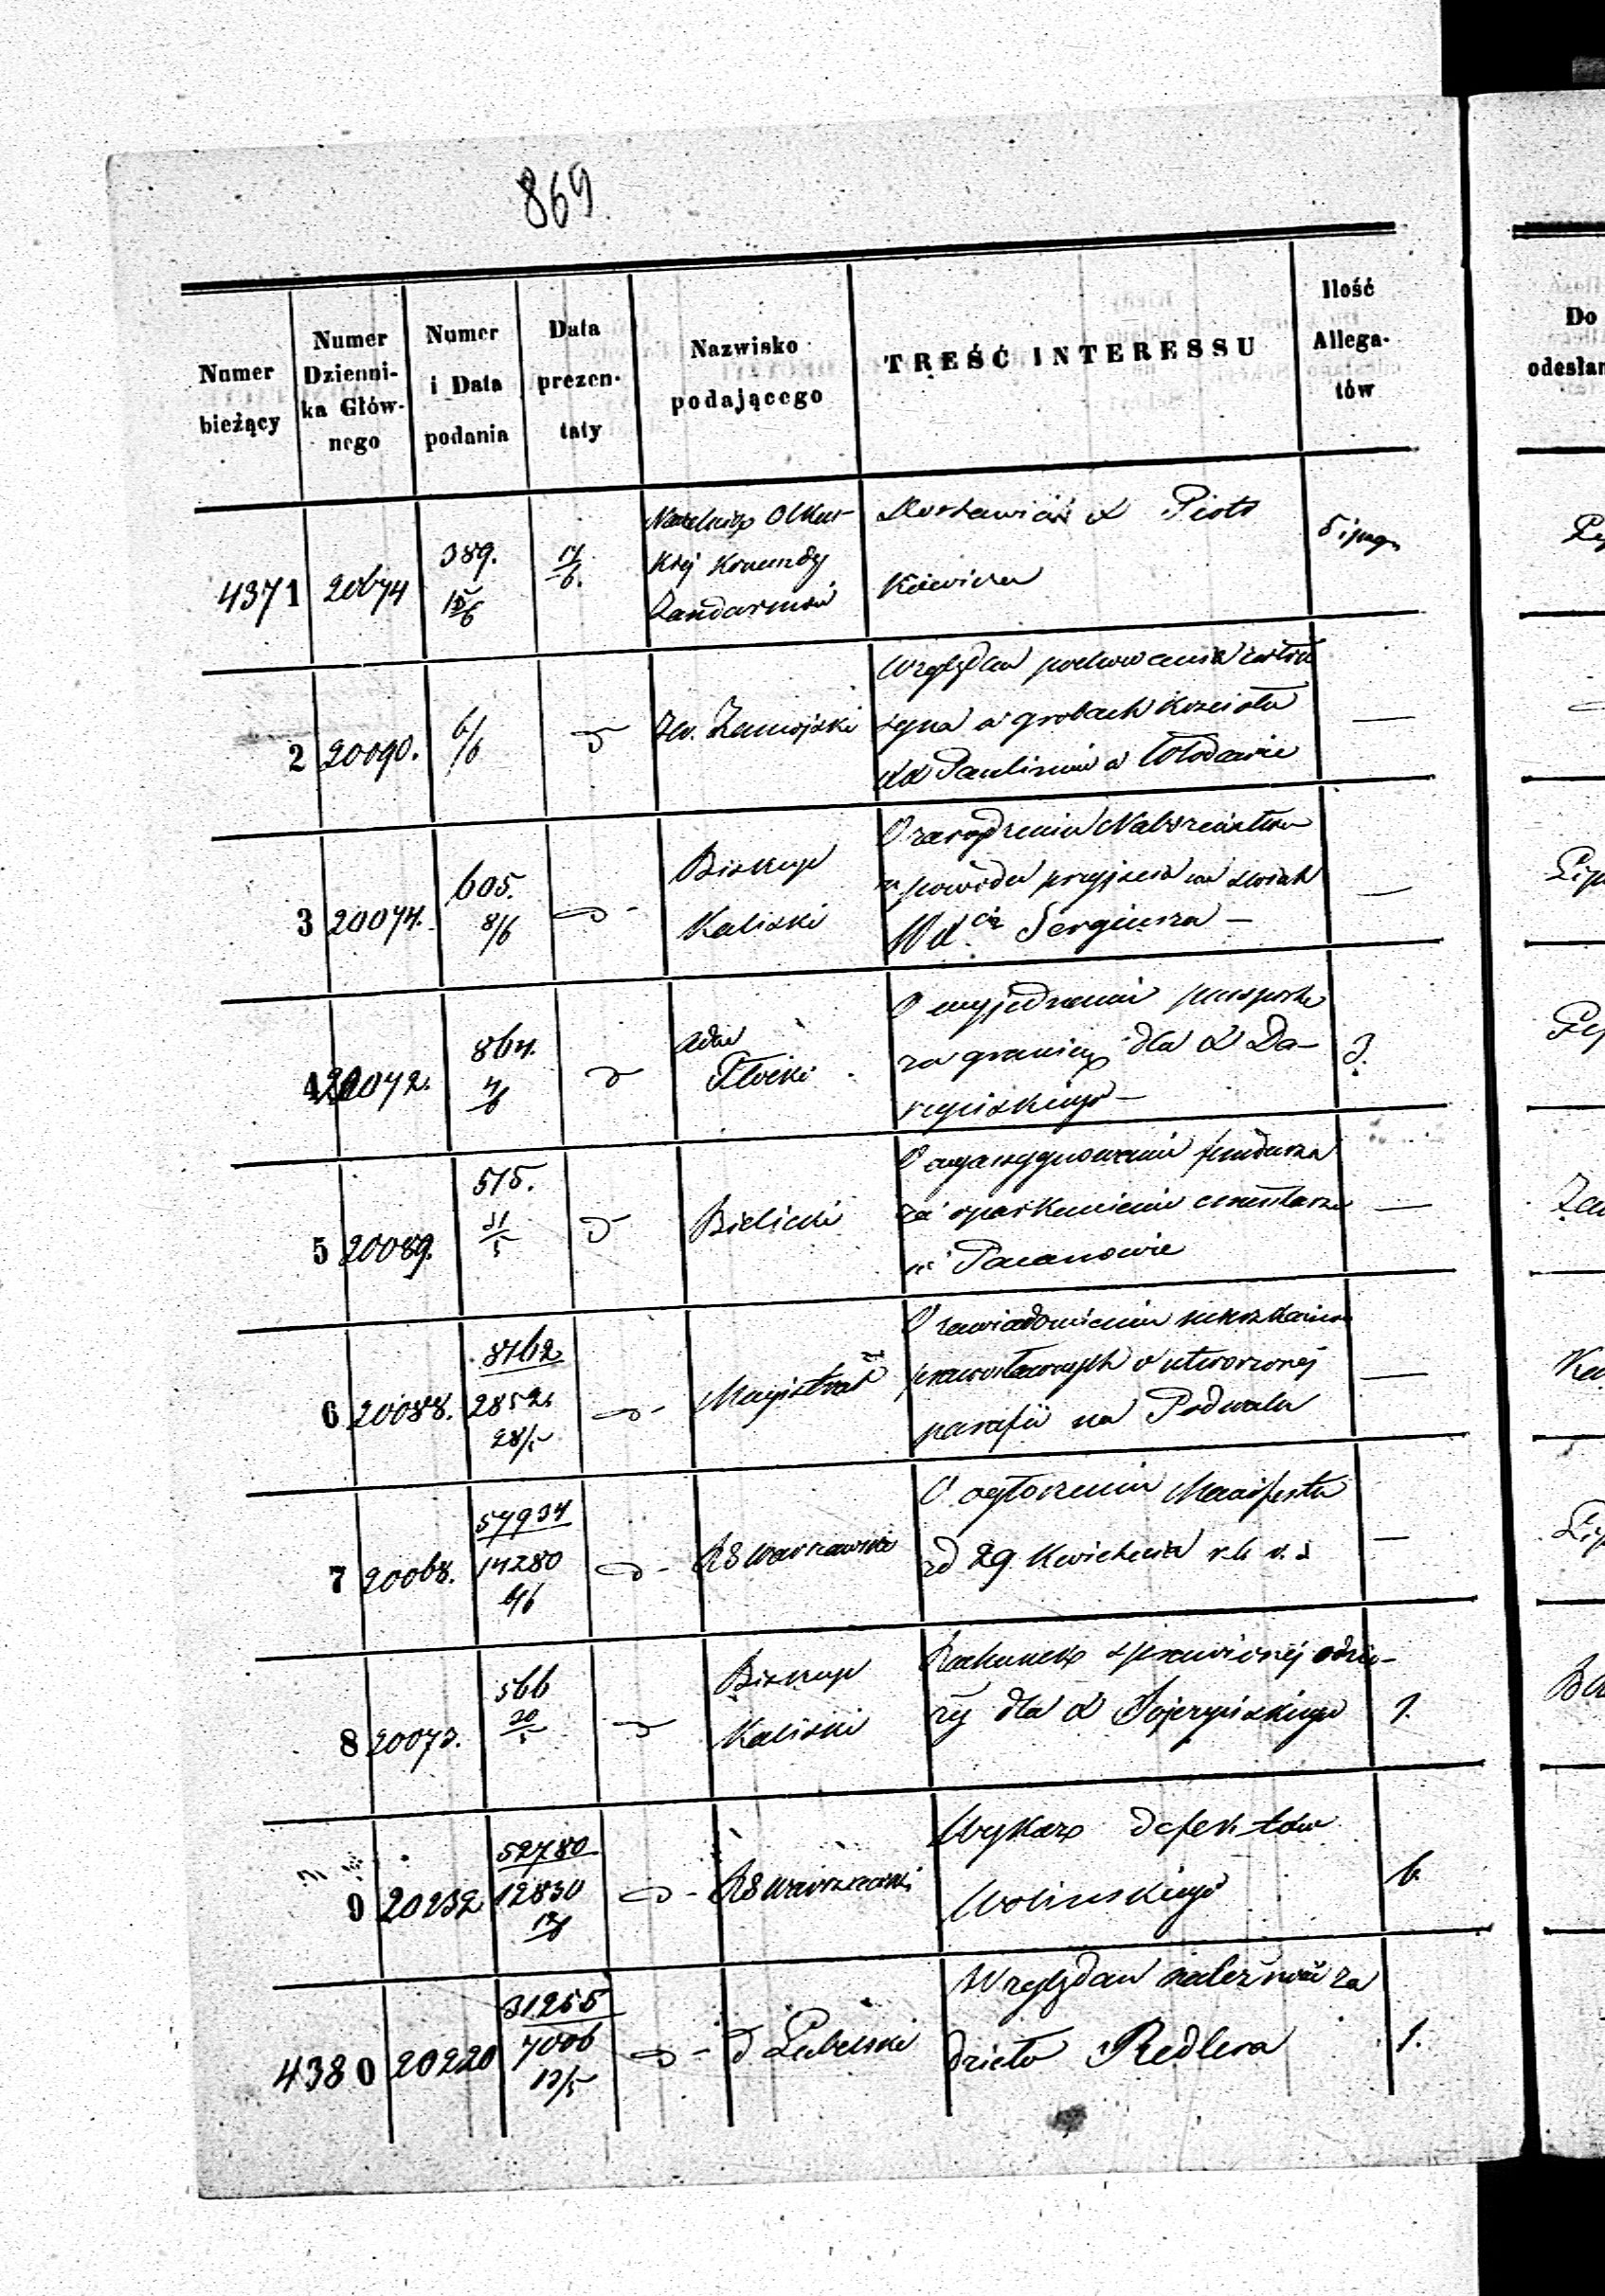 869
Numer bieżący
Numer Dzienni-ka Głów-nego
Numer i Data podania
Data prezen-taty
Nazwisko podającego
TREŚĆ INTERESSU
Ilość Allega-tów
Do
odesłan
4371 20674 389. 15/6 17/6.
Naczelnik Olkus-
kiej Komendy
Żandarmów
X Piotr
5
2 20090. 6/6 Zamojski
Względem pochowania zwłok
syna w grobach Kościoła
XX Paulinów w Włodawie
—
3 20074. 605. 8/6
Biskup
Kaliski
O zarządzeniu Nabożeństwa
z powodu przyjścia na świat
Wd. Cia Sergiusza —
—
4 20072. 864. 7/6
Adm
Płocki
O wyjednanie paszportu
za granicę dla X Da-
3.
5 20089. 515. 31/5
Bielicki
O wyasygnowanie funduszu
na oparkanienie cmentarza
w Pacanowie
—
6 20088. 8762 28526 28/5
Magistrat
O zawiadomieniu mieszkańców
prawosławnych o utworzonej
parafii na Podwalu
—
7 20068. 57934 14280 6/6
RG Warszawski
O ogłoszeniu Manifestu
z d 29 Kwietnia r. b. v. s
—
8 20073. 566 20/5
Biskup
Kaliski
Rachunek sprawionej odzie-
ży dla X
1.
9 20232 52780 12830
RG Warszawski
Wykaz defektów
Wolinskiego
6.
4380 20220 31255 7006 12/5
d Lubelski
Względem należności za
dzieło Redlera
1.